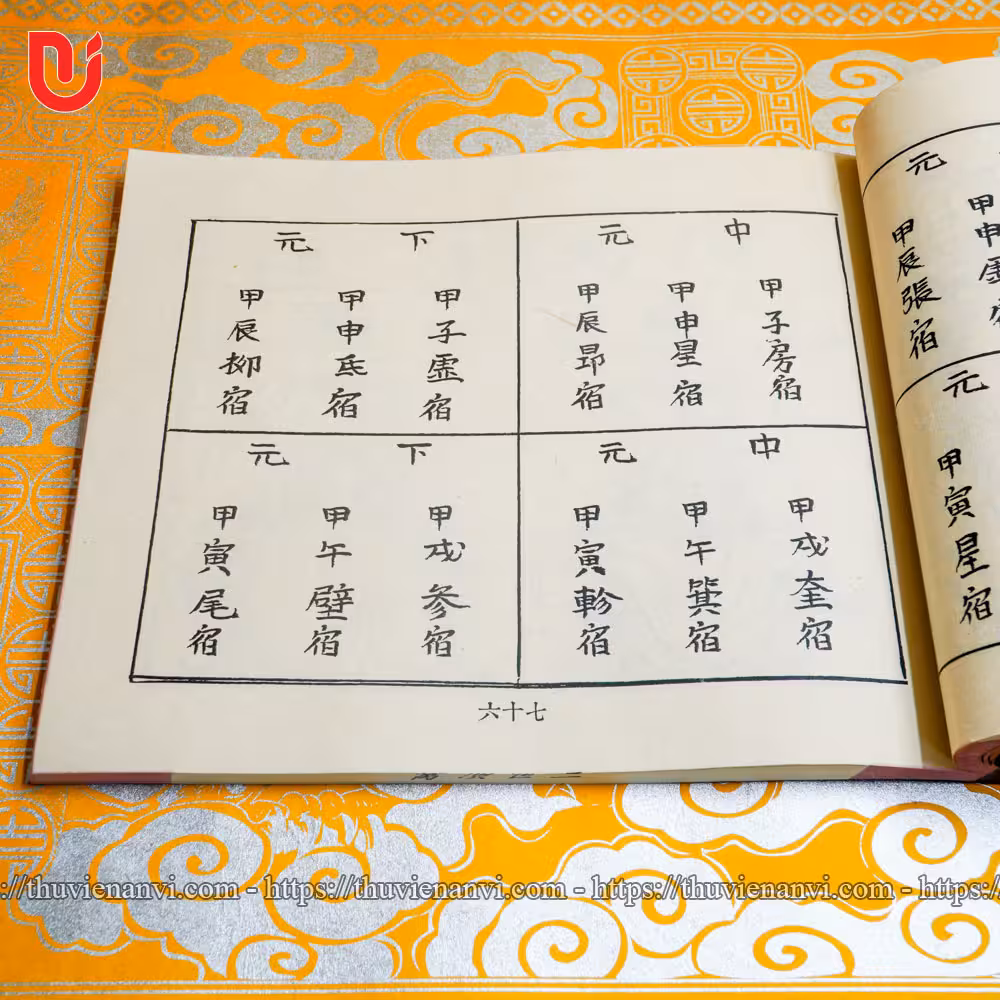 元
甲申虛
甲辰張宿
元
甲寅星宿
中元
甲子房宿
甲申星宿
甲辰昴宿
下元
甲子虛宿
甲申氐宿
甲辰柳宿
中元
甲戌奎宿
甲午箕宿
甲寅軫宿
下元
甲戌參宿
甲午壁宿
甲寅尾宿
六十七
://thuvienanvi.com - https://thuvienanvi.com - https://thuvienanvi.com - https://